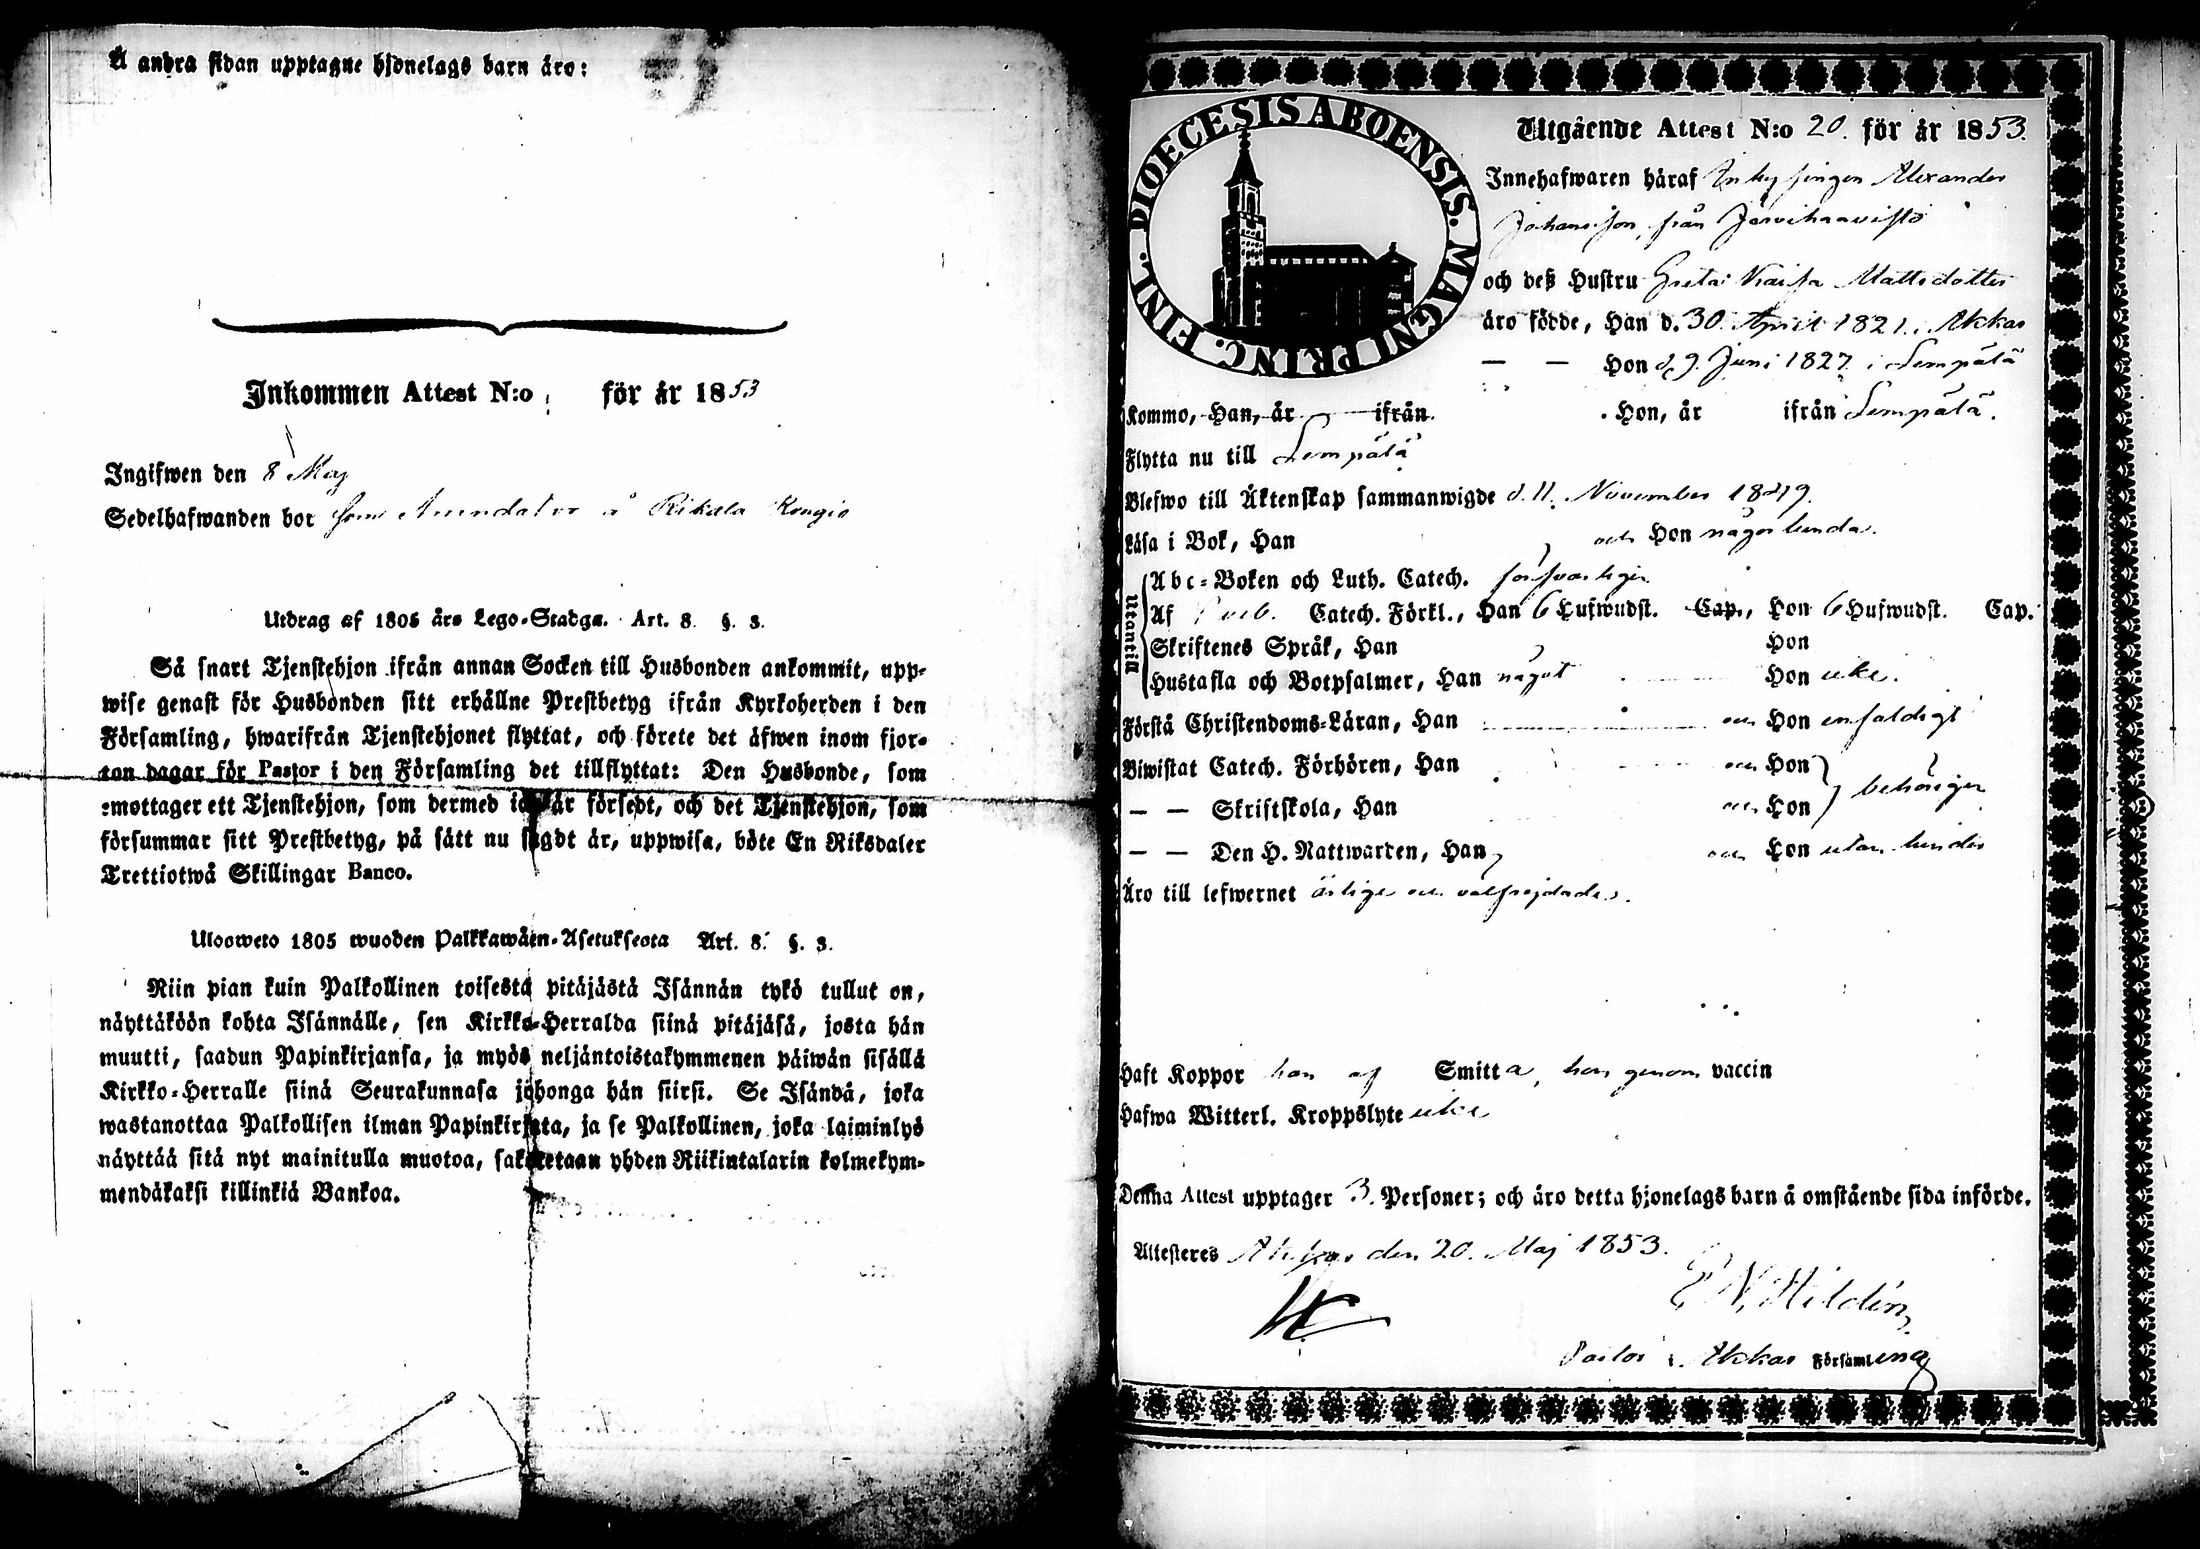 Å andra sidan upptagne hjonelags barn äro:
Inkommen Attest N:o för år 1853
Ingifwen den 8 Maj
Sedelhafwanden bor som å Rikala
Utdrag af 1805 års Lego-Stadga. Art. 8. §. 3.
Så snart Tjenstehjon ifrån annan Socken till Husbonden ankommit, upp-
wise genast för Husbonden sitt erhållne Prestbetyg ifrån Kyrkoherden i den
Församling, hwarifrån Tjenstehjonet flyttat, och förete det äfwen inom fjor-
ton dagar för Pastor i den Församling det tillflyttat: Den Husbonde, som
emottager ett Tjenstehjon, som dermed icke är försedt, och det Tjenstehjon, som
försummar sitt Prestbetyg, på sätt nu sagdt är, uppwisa, böte En Riksdaler
Trettiotwå Skillingar Banco.
Ulosweto 1805 wuoden Palkkawäen-Asetuksesta Art. 8. §. 3.
Niin pian kuin Palkollinen toisesta pitäjästä Isännän tykö tullut on,
näyttäköön kohta Isännälle, sen Kirkko-Herralda siinä pitäjäsä, josta hän
muutti, saadun Papinkirjansa, ja myös neljäntoistakymmenen päiwän sisällä
Kirkko-Herralle siinä Seurakunnasa johonga hän siirsi. Se Isändä, joka
wastanottaa Palkollisen ilman Papinkirjata, ja se Palkollinen, joka laiminlyö
näyttää sitä nyt mainitulla muotoa, sakotetaan yhden Riikintalarin kolmekym-
mendäkaksi killinkiä Bankoa.
DIOECESIS ABOENSIS. MAGNI PRINC. FINL.
Utgående Attest N:o 20. för år 1853.
Innehafwaren häraf Inhysingen Alexander
Johansson, från Järvihaavisto
och deß Hustru Greta Kaisa Mattsdotter
äro födde, Han d. 30. April 1821. i Akkas
— — Hon d. 9. Juni 1827. i Lempälä
Kommo, Han, år ifrån . Hon, år ifrån Lempälä.
Flytta nu till Lempälä
Blefwo till Äktenskap sammanwigde d. 11. November 1849.
Läsa i Bok, Han och Hon någorlunda.
Utantill
Abc-Boken och Luth. Catech. försvarligen
Af Catech. Förkl., Han 6 Hufwudst. Cap., Hon 6 Hufwudst. Cap.
Skriftenes Språk, Han Hon
Hustafla och Botpsalmer, Han något Hon icke.
Förstå Christendoms-Läran, Han och Hon enfaldigt
Biwistat Catech. Förhören, Han och Hon
— — Skriftskola, Han och Hon behörigen
— — Den H. Nattwarden, Han och Hon utan hinder
Äro till lefwernet ärlige och välfrejdade.
Haft Koppor han af Smitta, hon genom vaccin
Hafwa Witterl. Kroppslyte icke
Denna Attest upptager 3. Personer; och äro detta hjonelags barn å omstående sida införde.
Attesteres Akkas den 20. Maj 1853.
Hildén
Pastor i Akkas Församling